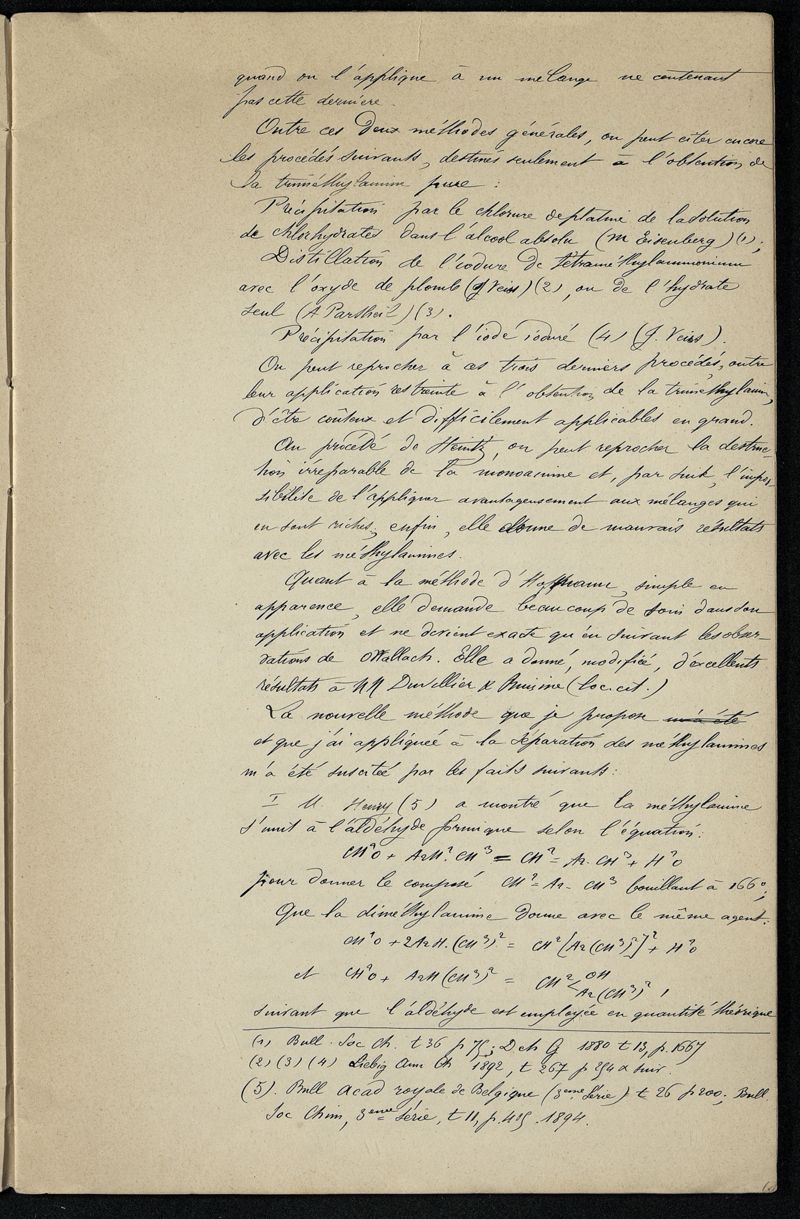 quand on l'applique à un mélange ne contenant
pas cette dernière.
Outre ces deux méthodes générales, on peut citer encore
les procédés suivants, destinés seulement à l'obtention de
la triméthylamine pure :
Précipitation par le chlorure de platine de la solution
de chlorhydrates dans l'alcool absolu (M Eisenberg) (1);
Distillation de l'iodure de tétraméthylammonium
avec l'oxyde de plomb (J Veiss) (2), ou de l'hydrate
seul (A Partheil) (3).
Précipitation par l'iode ioduré (4) (J. Veiss).
On peut reprocher à ces trois derniers procédés, outre
leur application restreinte à l'obtention de la triméthylamine,
d'être coûteux et difficilement applicables en grand.
Au procédé de Heintz, on peut reprocher la destruc-
tion irréparable de la monoamine et, par suite, l'impos-
sibilité de l'appliquer avantageusement aux mélanges qui
en sont riches; enfin, elle donne de mauvais résultats
avec les méthylamines.
Quant à la méthode d'Hoffmann, simple en
apparence, elle demande beaucoup de soin dans son
application et ne devient exacte qu'en suivant les obser-
vations de Wallach. Elle a donné, modifiée, d'excellents
résultats à MM Duvillier & Buisine (loc. cit.)
La nouvelle méthode que je propose m'a été
et que j'ai appliquée à la séparation des méthylamines
m'a été suscitée par les faits suivants:
I M. Henry (5) a montré que la méthylamine
s'unit à l'aldéhyde formique selon l'équation:
CH²O + AzH².CH³ = CH² = Az - CH³ + H²O
pour donner le composé CH² = Az - CH³ bouillant à 166°;
Que la diméthylamine donne avec le même agent:
CH²O + 2AzH.(CH³)² = CH²[Az(CH³)²]² + H²O
et CH²O + AzH(CH³)² = CH²<OH Az(CH³)²,
suivant que l'aldéhyde est employée en quantité théorique
(1) Bull. Soc Ch. t 36 p 75; D ch G 1880 t 13, p. 1667
(2) (3) (4) Liebig Ann Ch 1892, t 267 p 254 & suiv.
(5). Bull Acad royale de Belgique (3eme Série) t 26 p 200; Bull.
Soc Chim, 3eme série, t 11, p. 415. 1894.